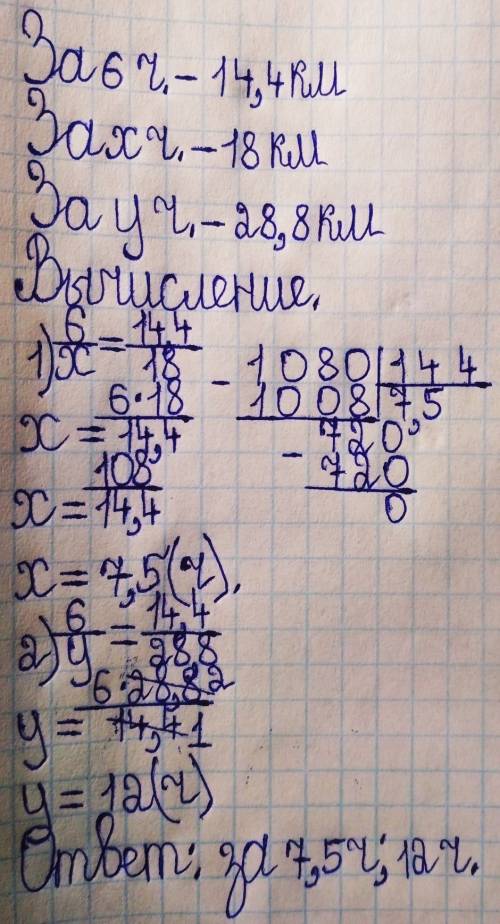 За 6 ч. – 14,4 км
За х ч. – 18 км
За у ч. – 28,8 км
Вычисление.
1) 6/x = 14,4/18
x = 6·18/14,4
x = 108/14,4
1080 | 144
– 1008 | 7,5
720
– 720
0
x = 7,5 (ч).
2) 6/y = 14,4/28,8
y = 6·28,8 2/14,4 1
y = 12 (ч)
Ответ: за 7,5 ч; 12 ч.